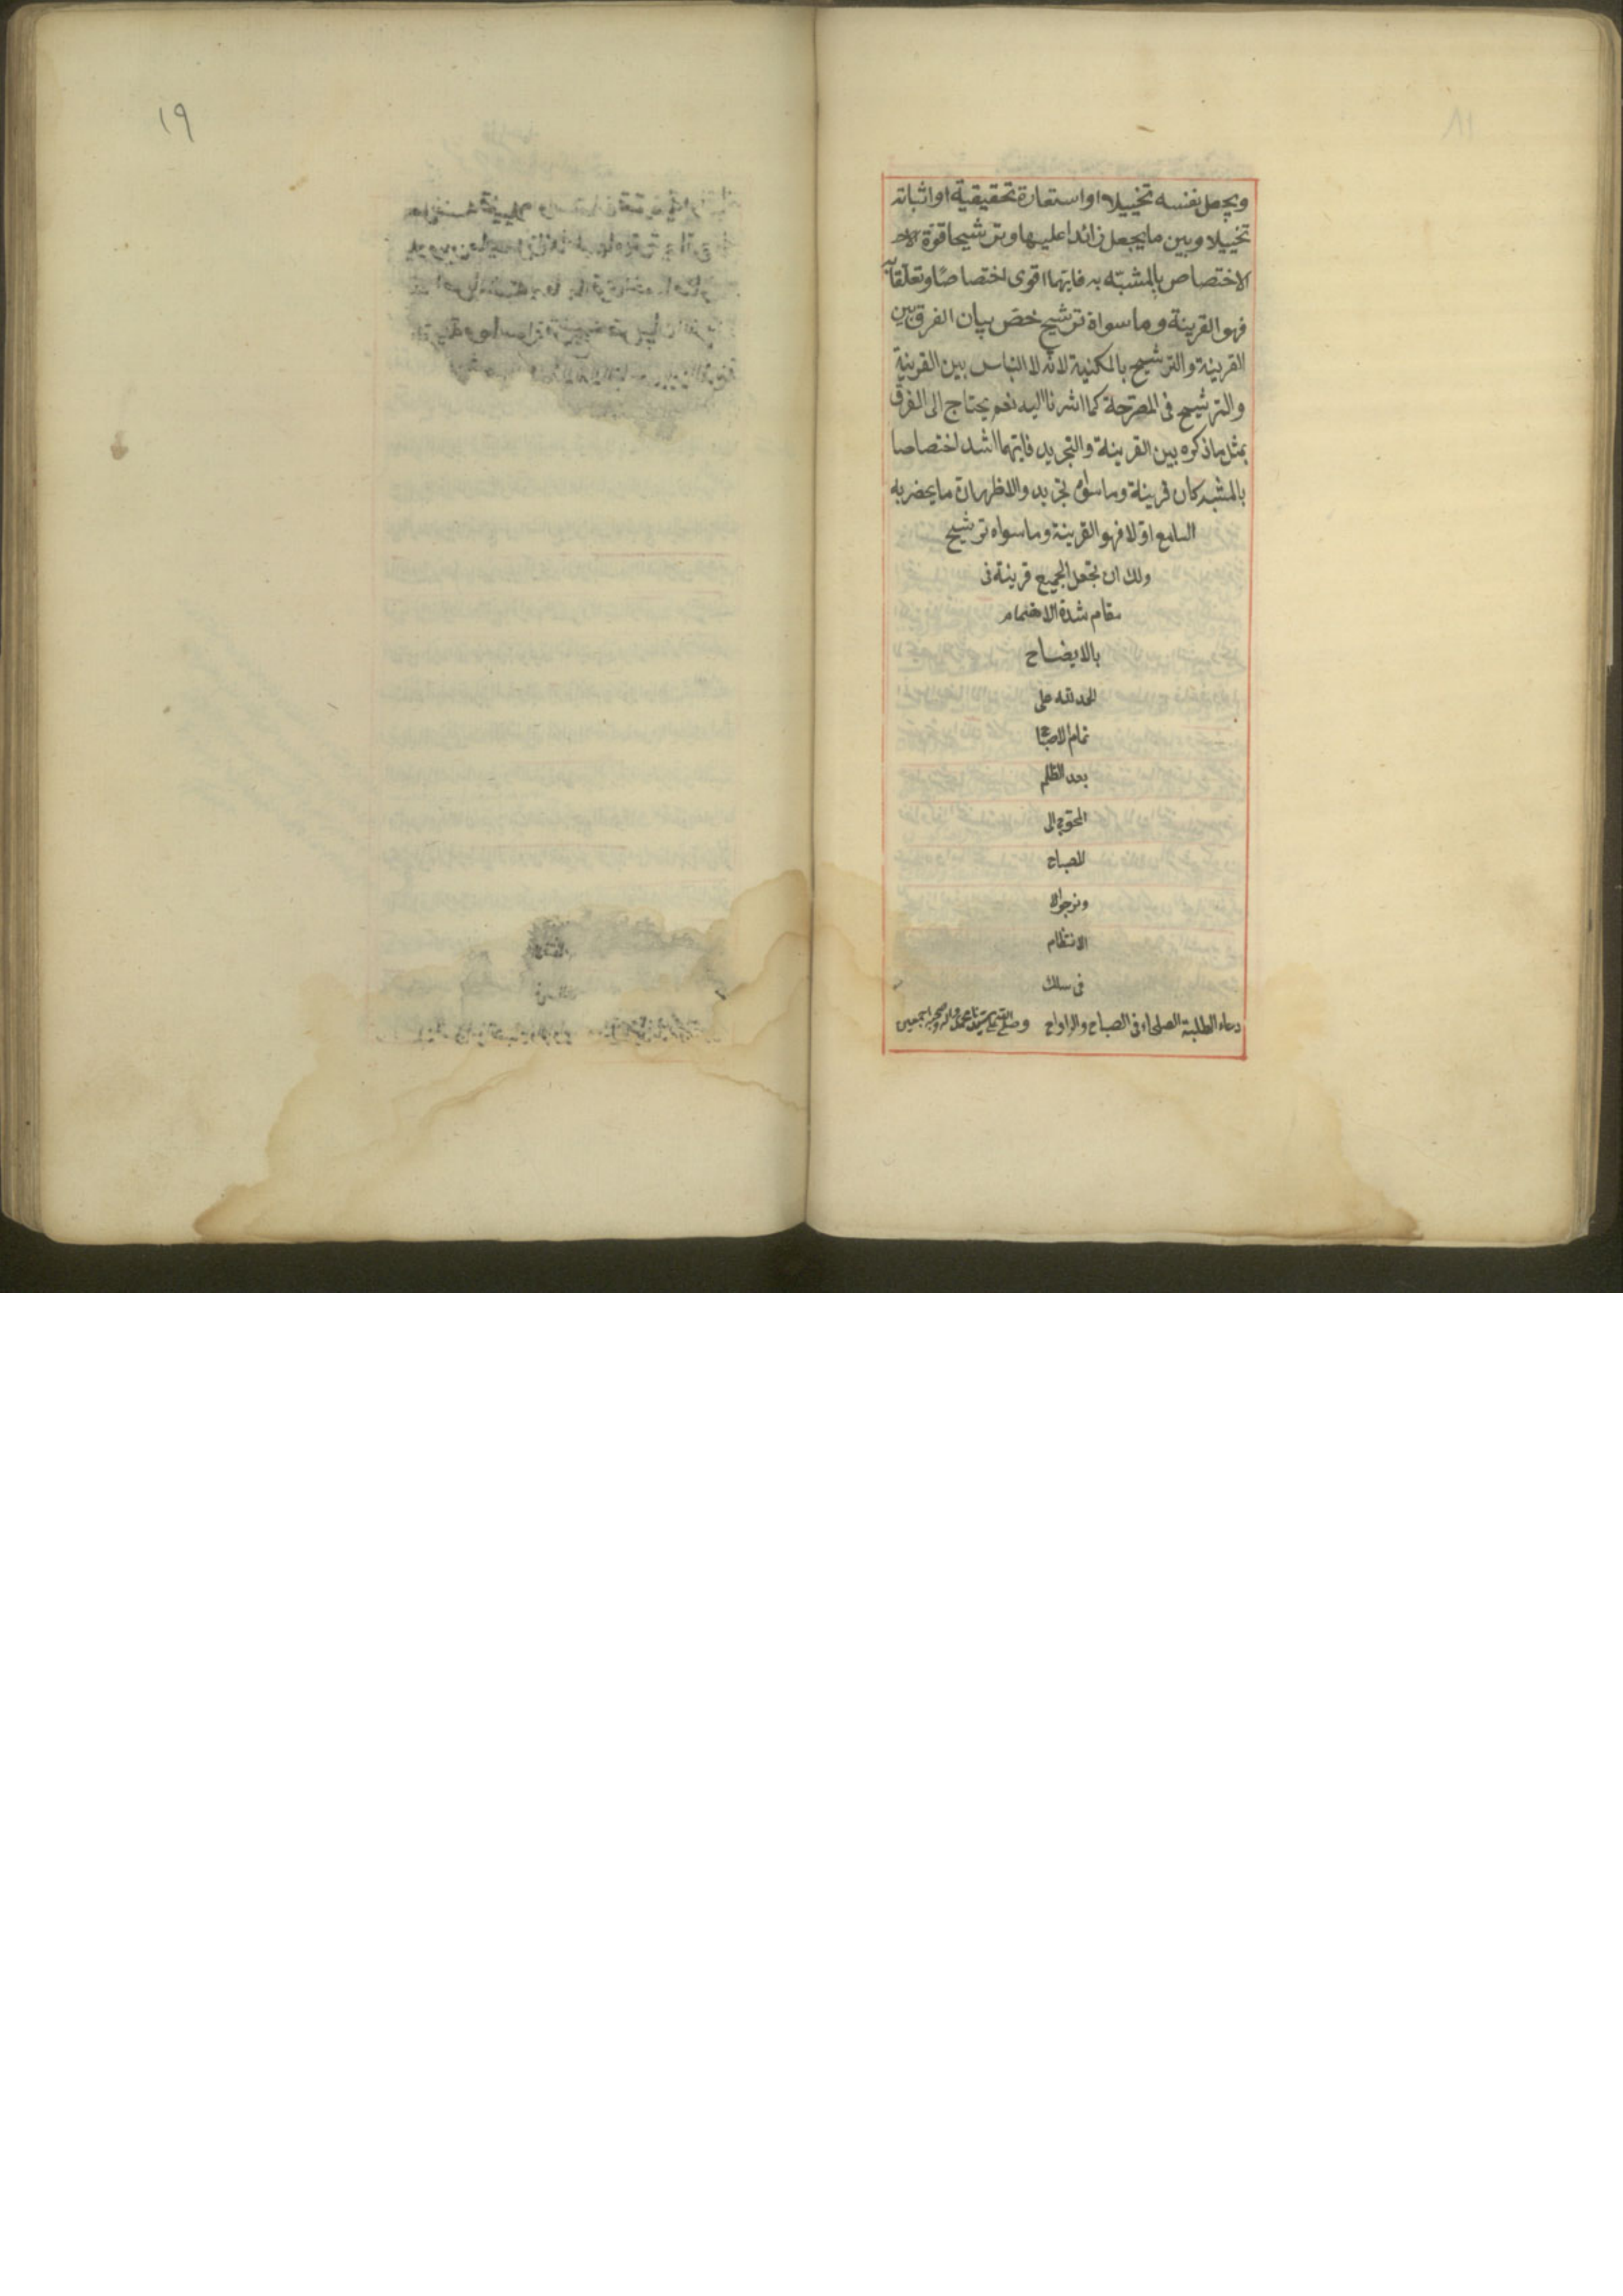 ويجعل نفسه تخييلا او استعارة تحقيقية او اثباته
تخييلا وبين ما يجعل زائدا عليها وترشيحا قوة
الاختصاص بالمشبّه به فايهما اقوى اختصاصًا وتعلّقا به
فهو القرينة وما سواه ترشيح خصّ بيان الفرق بين
القرينة والترشيح بالمكنية لانه لا التباس بين القرينة
والترشيح فى المصرّحة كما اشرنا اليه نعم يحتاج الى الفرق
بمثل ما ذكره بين القرينة والتجريد فايهما اشد اختصاصا
بالمشبه كان قرينة وما سواه تجريد والاظهر ان ما يحضر به
السامع اوّلا فهو القرينة وما سواه ترشيح
ولك ان تجعل الجميع قرينة فى
مقام شدة الاهتمام
بالايضاح
الحمد لله على
تمام الاصباح
بعد الظلم
المحوج الى
المصباح
ونرجو
الانتظام
فى سلك
دعاء الطلبة الصلحاء فى الصباح والرواح وصلى الله على سيدنا محمد واله وصحبه اجمعين
١٩